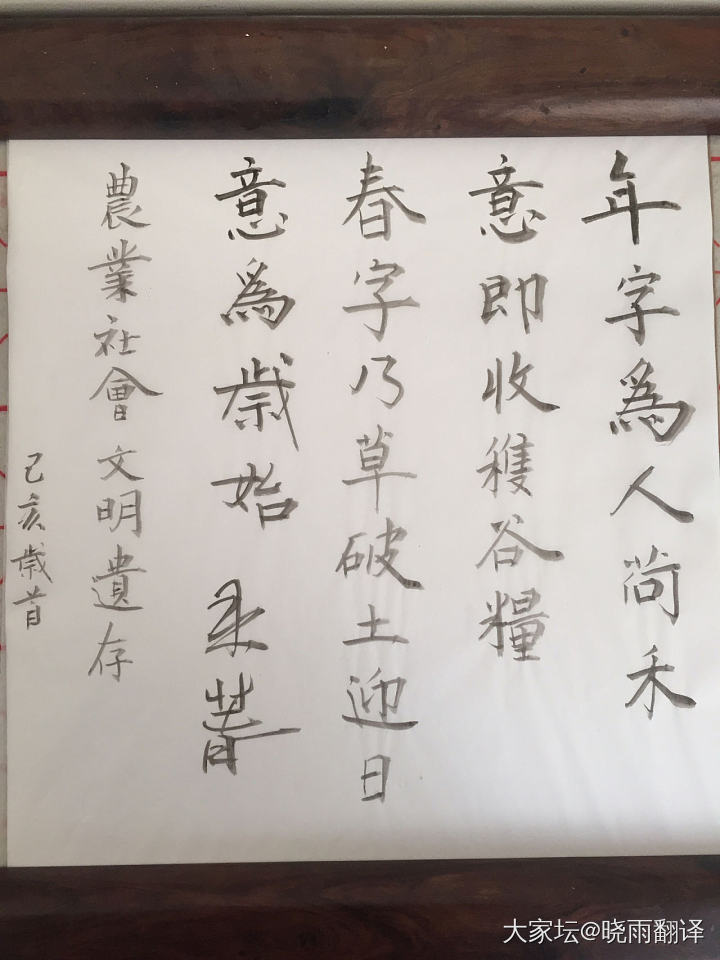 年字為人荷禾
意即收穫谷糧
春字乃草破土迎日
意為歲始
農業社會文明遺存
己亥歲首
大家坛@晓雨翻译